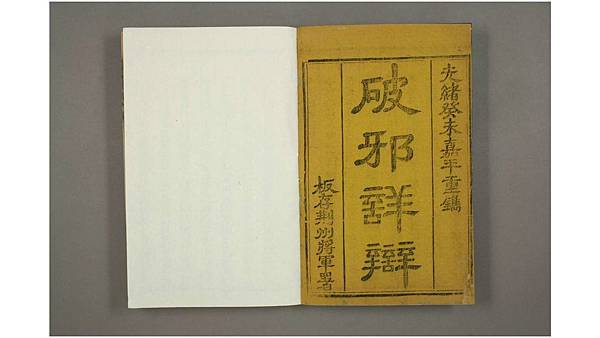 光緒癸未嘉平重鐫
破邪詳辯
板存荆州將軍署